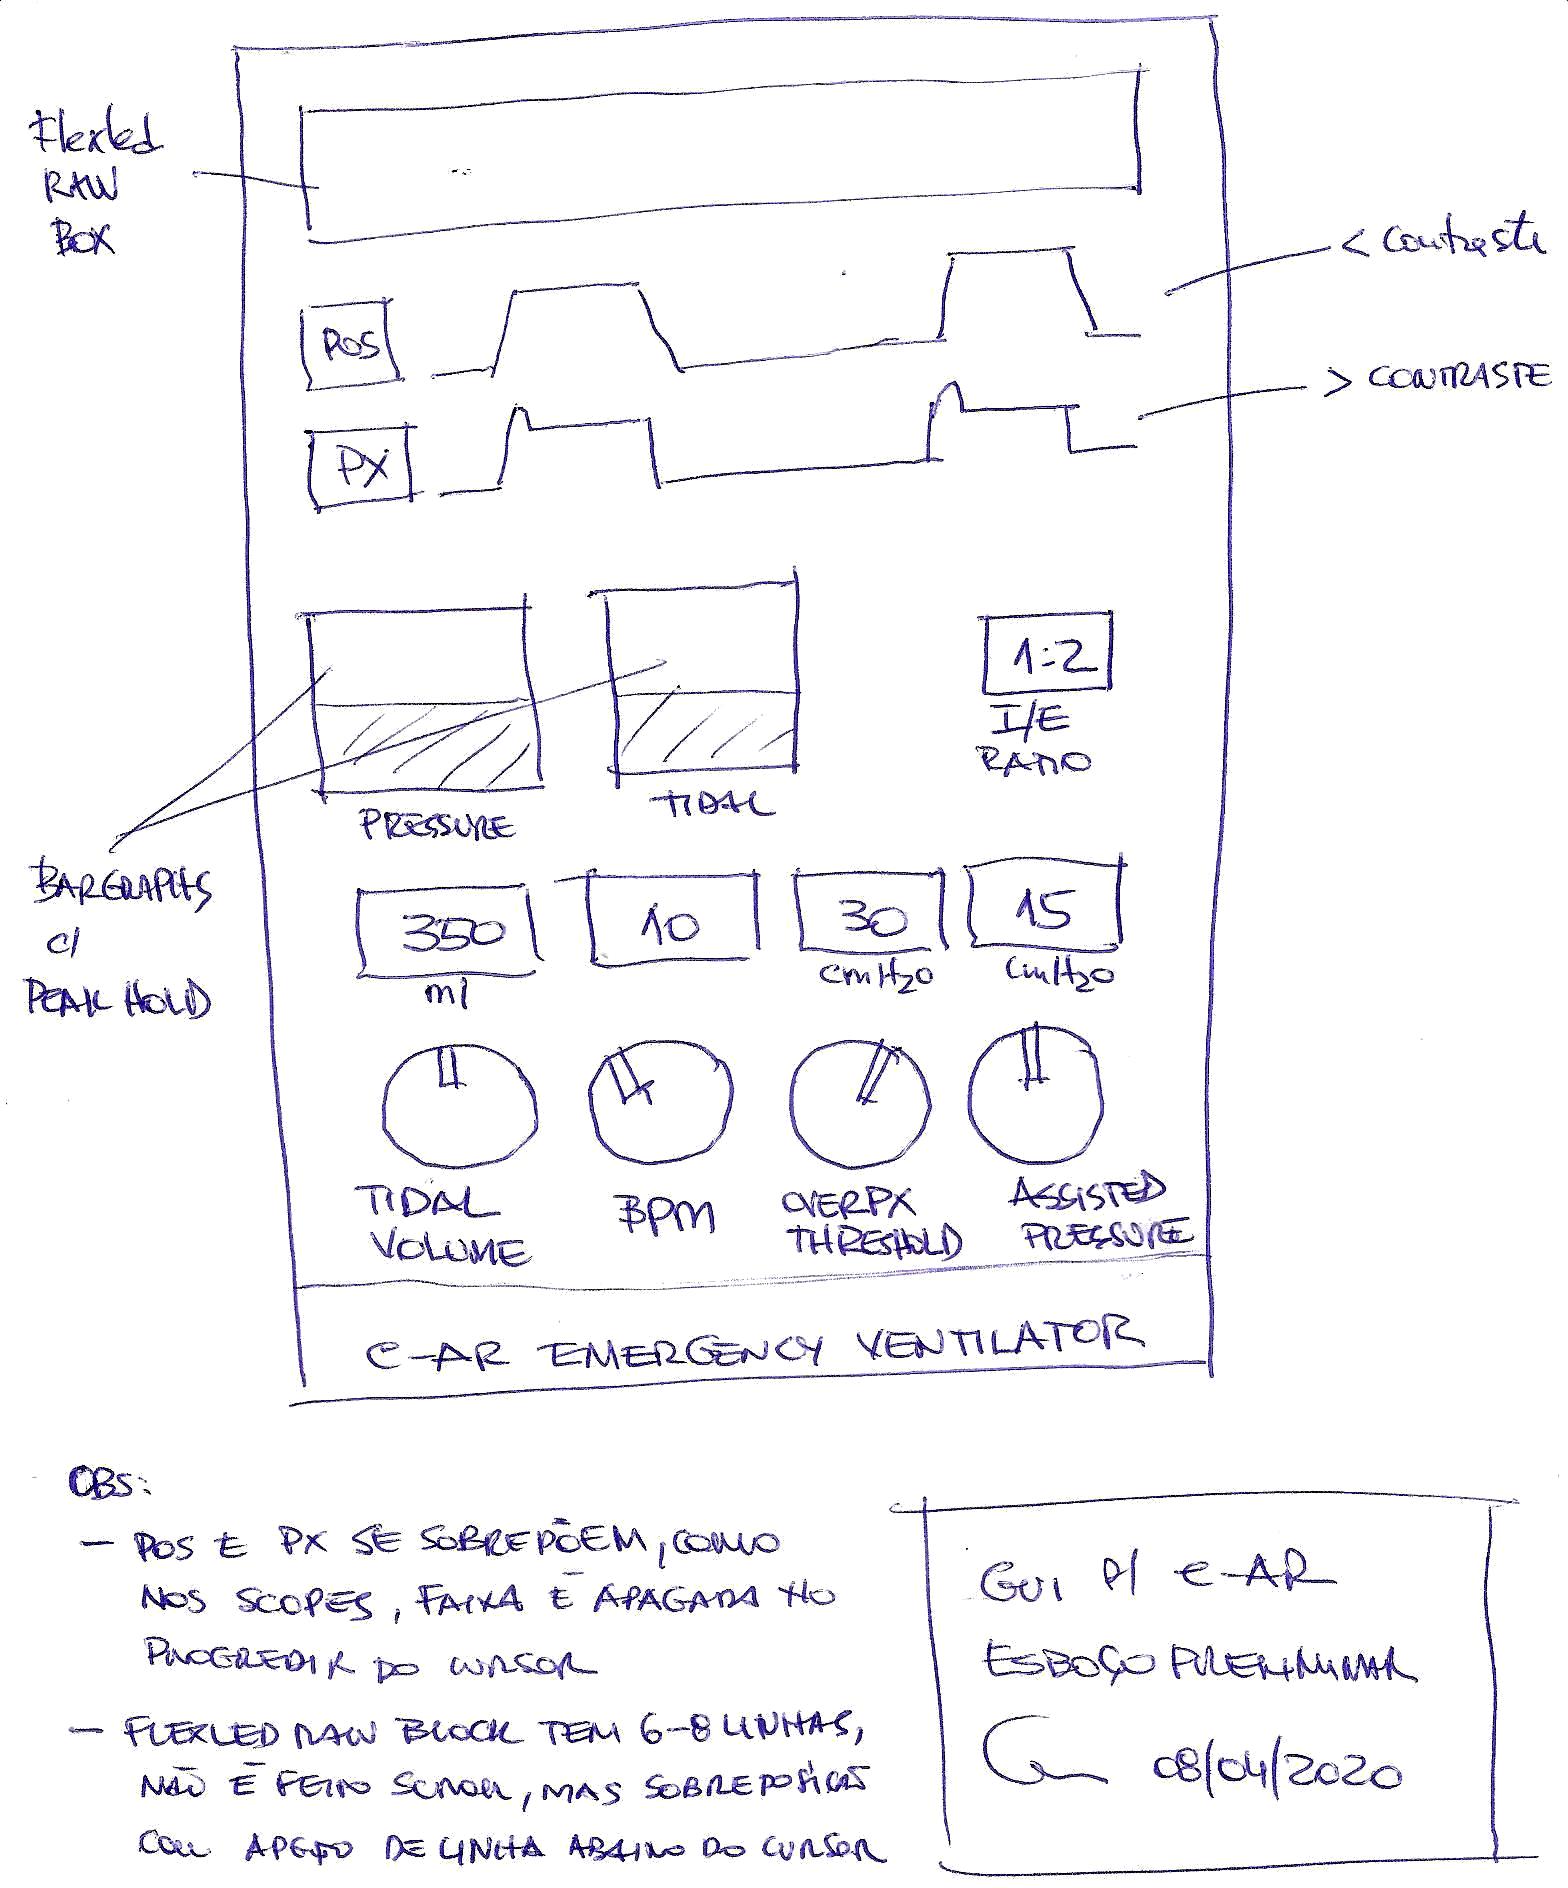 Flexled
RAW
BOX
< Contraste
POS
> CONTRASTE
PX
1:2
I/E
RATIO
PRESSURE
TIDAL
BARGRAPHS
c/
PEAK HOLD
350
10
30
15
ml
cmH2O
cmH2O
TIDAL
VOLUME
BPM
OVERPX
THRESHOLD
ASSISTED
PRESSURE
E-AR EMERGENCY VENTILATOR
OBS:
- POS E PX SE SOBREPÕEM, COMO
NOS SCOPES, FAIXA É APAGADA NO
PROGREDIR DO CURSOR
- FLEXLED RAW BLOCK TEM 6-8 LINHAS,
NÃO É FEITO SCROLL, MAS SOBREPOSIÇÃO
COM DE LINHA ABAIXO DO CURSOR
GUI P/ E-AR
ESBOÇO PRELIMINAR
08/04/2020